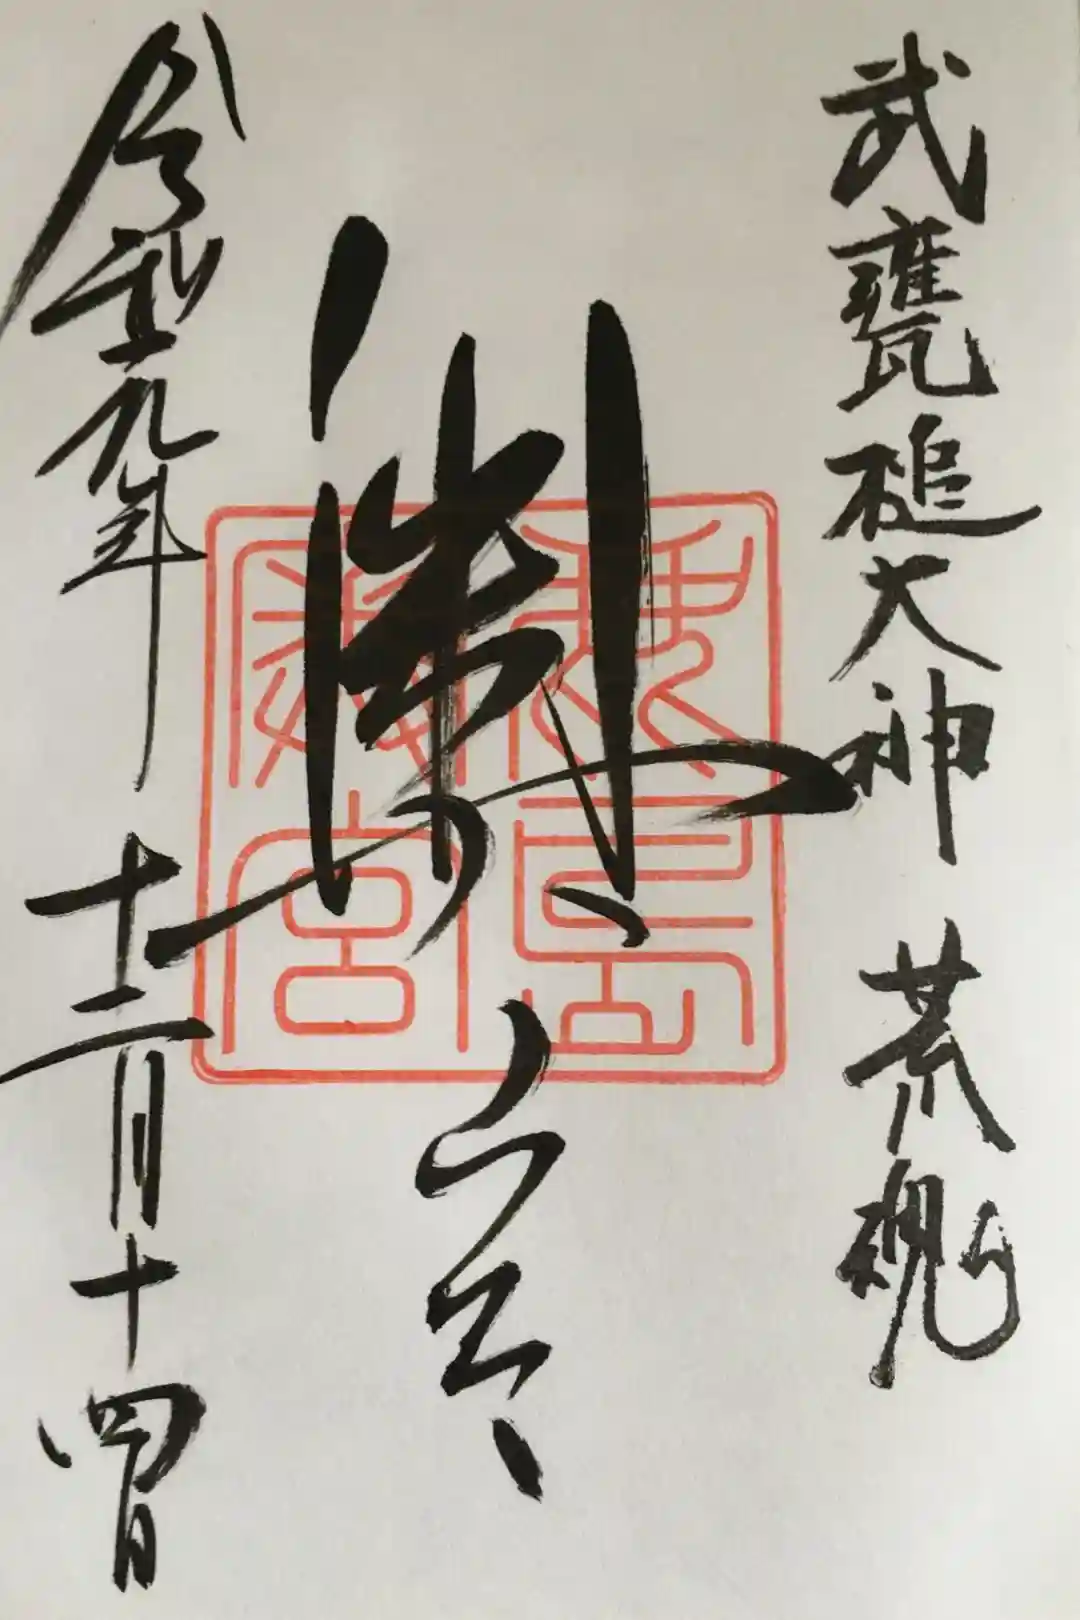 武甕槌大神 荒魂
奥宮
鹿島
奥宮
令和元年十二月十四日